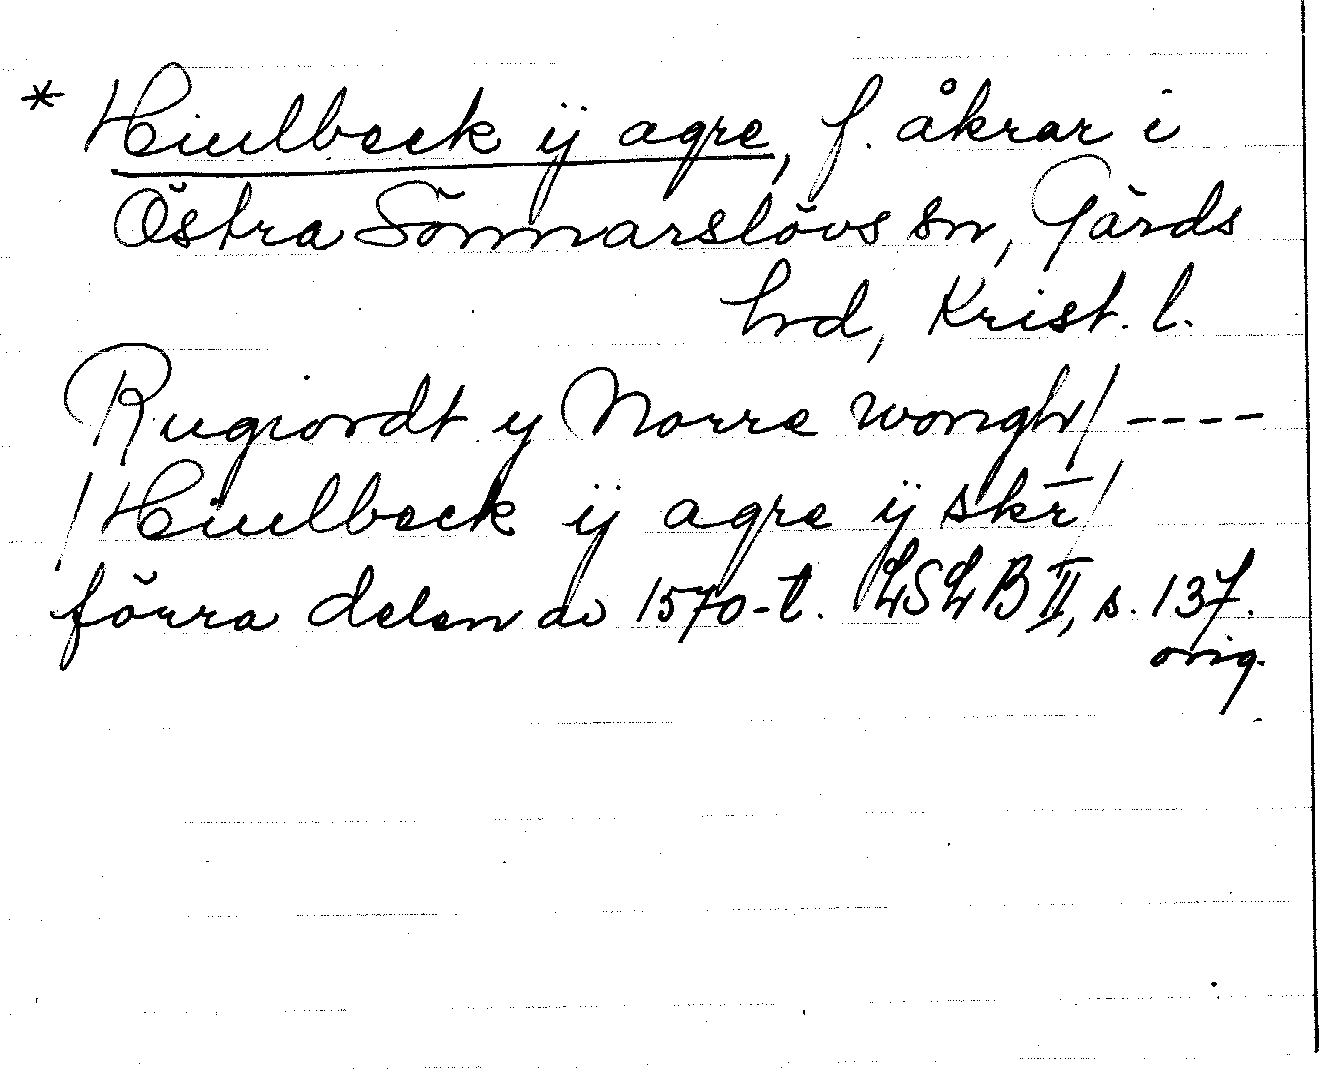 * Hiulbeck ij agre, f. åkrar i
Östra Sönnarslövs sn, Gärds
hrd, Krist. l.
Rugiordt y Norre wongh/ ----
/Hiulbeck ij agre ij skr̄/
förra delen av 1570-t. LSLB II, s. 137.
orig.